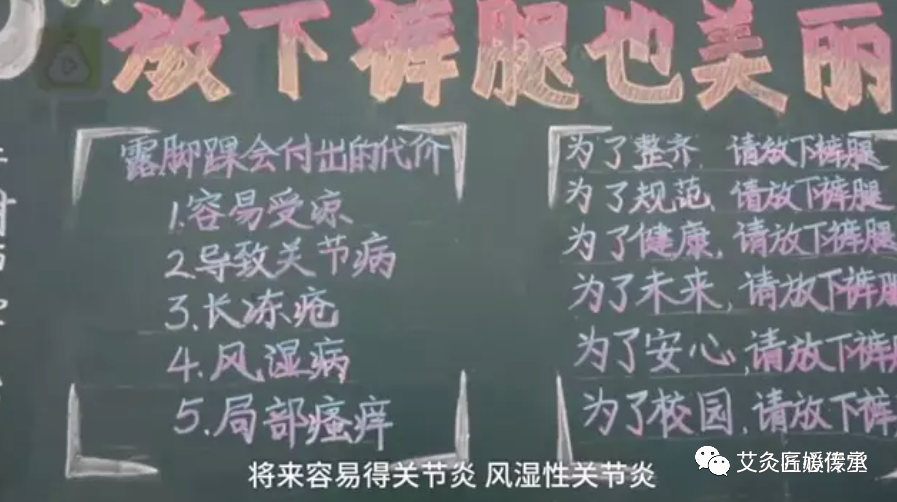 放下裤腿也美丽
露脚踝会付出的代价
1.容易受凉
2.导致关节病
3.长冻疮
4.风湿病
5.局部瘙痒
为了整齐,请放下裤腿
为了规范,请放下裤腿
为了健康,请放下裤腿
为了未来,请放下裤腿
为了安心,请放下裤腿
为了校园,请放下裤
将来容易得关节炎 风湿性关节炎
艾灸匠媛傣承